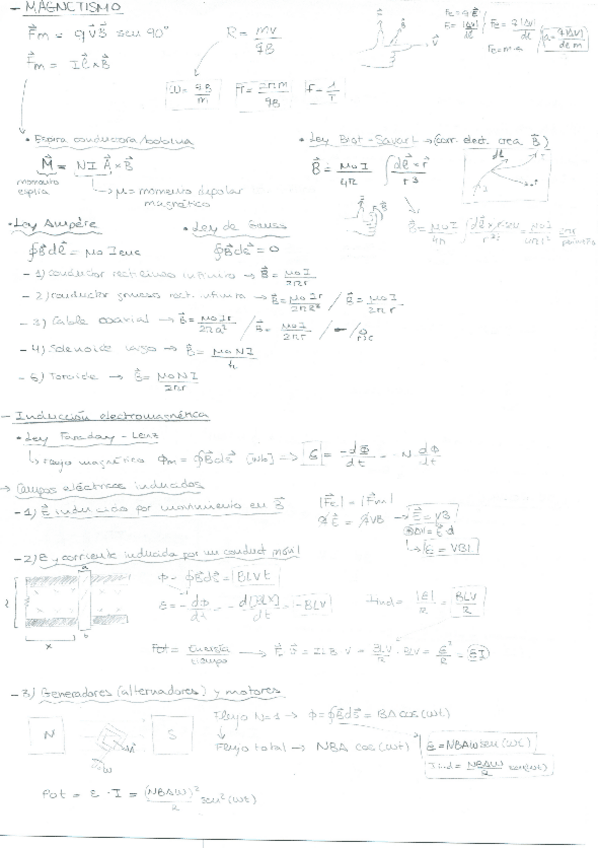 - MAGNETISMO
F⃗m = q v⃗ B⃗ sen 90° R = mv/qB
F⃗m = I ℓ⃗ x B⃗
ω = qB/m T = 2πm/qB f = 1/T
• Espira conductora/bobina
M⃗ = N I A⃗ x B⃗
momento espira
μ = momento dipolar magnético
• Ley Biot-Savart → (corr. elect. crea B⃗)
B⃗ = μ0 I/4π ∫ dℓ⃗ x r⃗/r³
• Ley Ampère • Ley de Gauss
∮B⃗dℓ⃗ = μ0 Ienc ∮B⃗ds⃗ = 0
- 1) conductor rectilíneo infinito → B⃗ = μ0 I/2πr
- 2) conductor grueso rect. infinito → B⃗ = μ0 I r/2πR² / B⃗ = μ0 I/2πr
- 3) Cable coaxial → B⃗ = μ0 I r/2πa² / B = μ0 I/2πr / 0
- 4) Solenoide largo → B⃗ = μ0 N I/h
- 5) Toroide → B⃗ = μ0 N I/2πr
- Inducción electromagnética
• Ley Faraday - Lenz
↳ flujo magnético Φm = ∮B⃗ds⃗ [Wb] => ε = -dΦ/dt = -N dΦ/dt
→ Campos eléctricos inducidos
- 1) E inducido por movimiento en B⃗
|F⃗e| = |F⃗m|
q E⃗ = qVB → E⃗ = VB
ΔV = E⃗ · d
↳ ε = VBl
- 2) ε, corriente inducida por un conduct. móvil
Φ = ∮B⃗ds⃗ = BLVt
ε = -dΦ/dt = -d[BLX]/dt = -BLV Iind = |ε|/R = BLV/R
Pot = Energía/tiempo → F⃗ · v⃗ = ILB · V = BLV/R · BLV = ε²/R = εI
- 3) Generadores (alternadores) y motores
Flujo N=1 → Φ = ∮B⃗ds⃗ = BA cos(ωt)
N S
Flujo total → NBA cos(ωt)
ε = NBAω sen(ωt)
Iind = NBAω/R sen(ωt)
Pot = ε · I = (NBAω)²/R sen²(ωt)